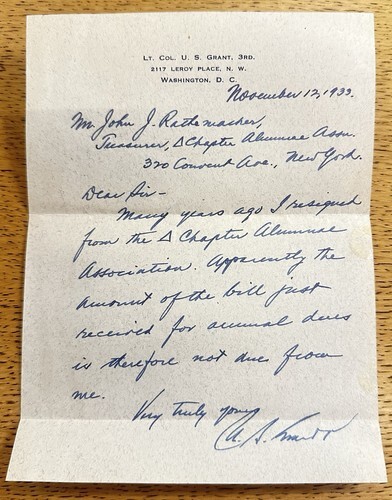 LT. COL. U. S. GRANT, 3RD.
2117 LEROY PLACE, N. W.
WASHINGTON, D. C.
November 12, 1933.
Mr. John J. Rathemacher,
Treasurer, Δ Chapter Alumnae Assn.
320 Convent Ave., New York.
Dear Sir-
Many years ago I resigned
from the Δ Chapter Alumnae
Association. Apparently the
amount of the bill just
received for annual dues
is therefore not due from
me.
Very truly yours
U. S. Grant 3d